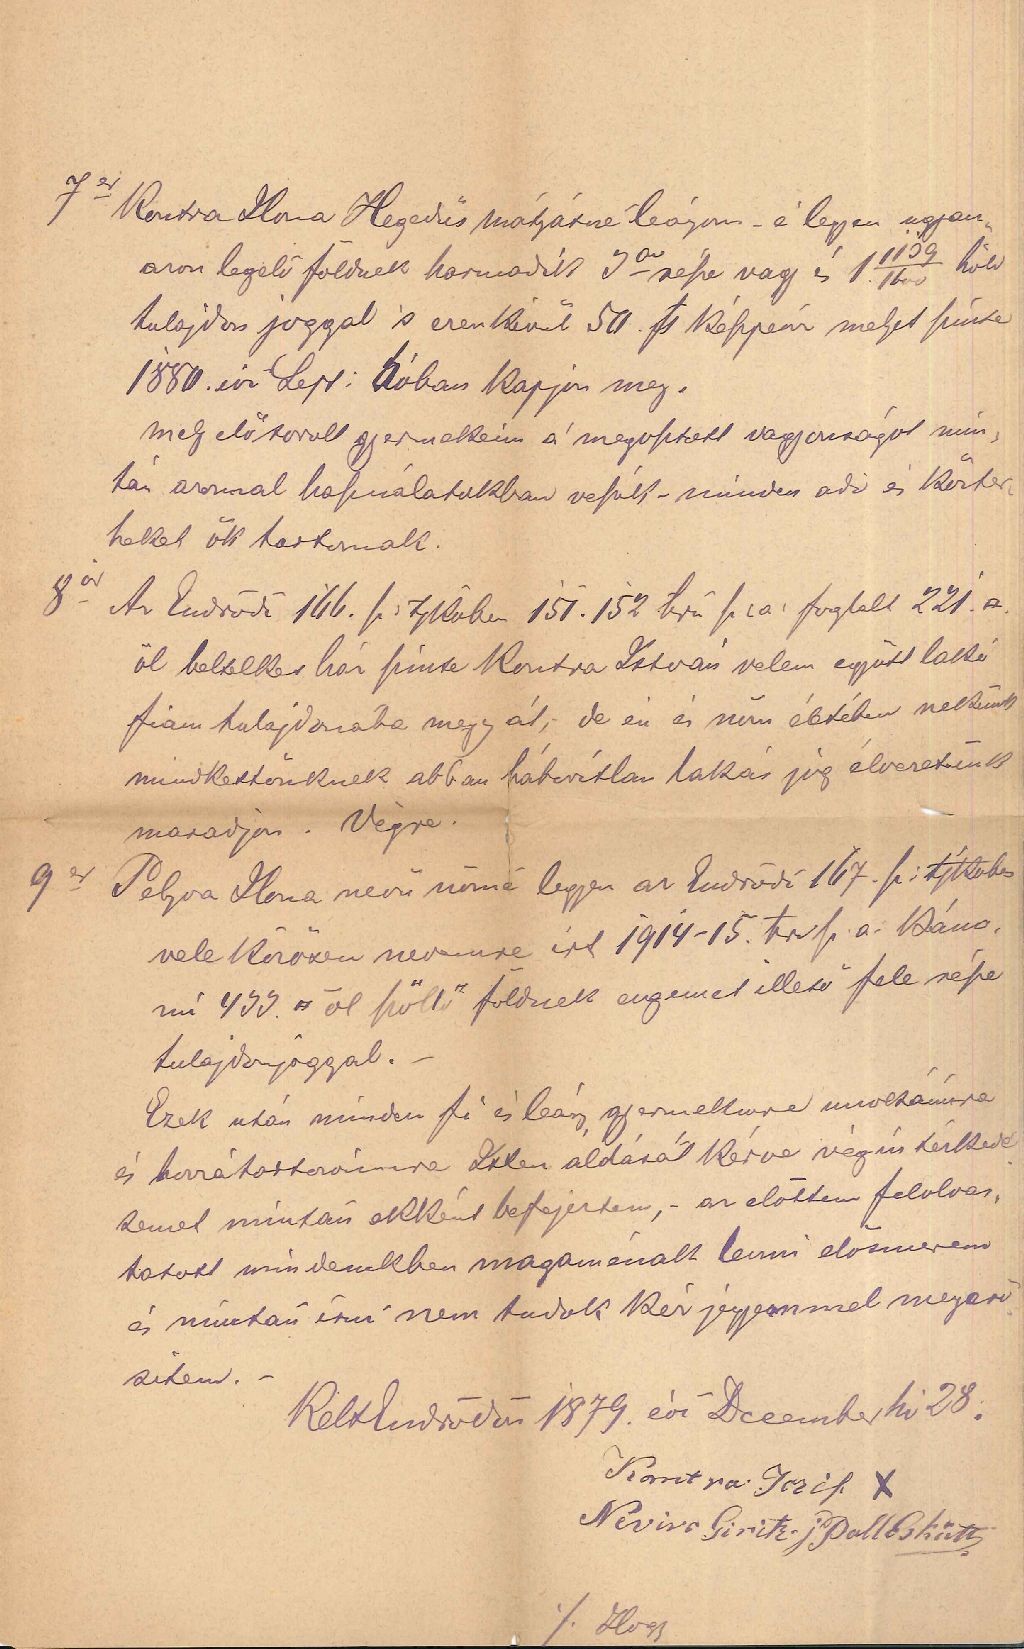 7er Kontra Ilona Hegedüs Mátyásné leányom - é legyen ugyan„
azon legelő földnek harmadik 3ad része vagy is 1 1139/1600 hold
tulajdon joggal 's ezenkivül 50. ft képpen melyet szinte
1880. évi Sept: hóban kapjon meg.
mely elősorolt gyermekeim á megosztott vagyonságot min„
tán azonnal használatukban veszik - minden adó és közter„
heket ők tartoznak.
8or Az Endrődi 166. sz: tjkőben 151. 152 hrú sz: a: foglalt 221. □
öl beltelkes ház szinte Kontra István velem együtt lakó
fiam tulajdonába megy át, - de én és nőm éltében nekünk
mindkettőnknek abban háborítlan lakás jog élvezetünk
maradjon. Végre.
9er Pelyva Ilona nevü nőmé legyen az Endrődi 167. sz: tjkőben
vele közösen nevemre irt 1914-15. hrsz. a:
433. □ öl szöllő földnek engemet illető fele része
tulajdonjoggal. -
Ezek után minden fi és leány gyermekimre unokáimra
és hozzátartozóimra Isten áldását kérve végintézkedé„
semet miután ekként befejeztem, - az előttem felolvas„
tatott mindenekben magaménak lenni elősmerem
és miután irni nem tudok kéz jegyemmel megerő
sitem. -
Kelt Endrődön 1879. évi December hó 28.
Kontra Jozif X
Néviro Pall Eskütt
·/. Hogy